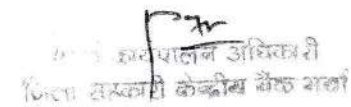 कार्यपालन अधिकारी
जिला सहकारी केन्द्रीय बैंक मर्या